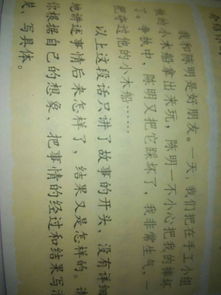 我和陈明是好朋友。一天，我们把在手工小组
我的小木船拿出来玩，陈明一不小心把我的摔坏
了。争执中，陈明又把它踩坏了，我非常生气，一
把夺过他的小木船……
以上这段话只讲了故事的开头，没有详细
地讲述事情后来怎样了，结果又是怎样的。请
你根据自己的想象，把事情的经过和结果写
写具体。